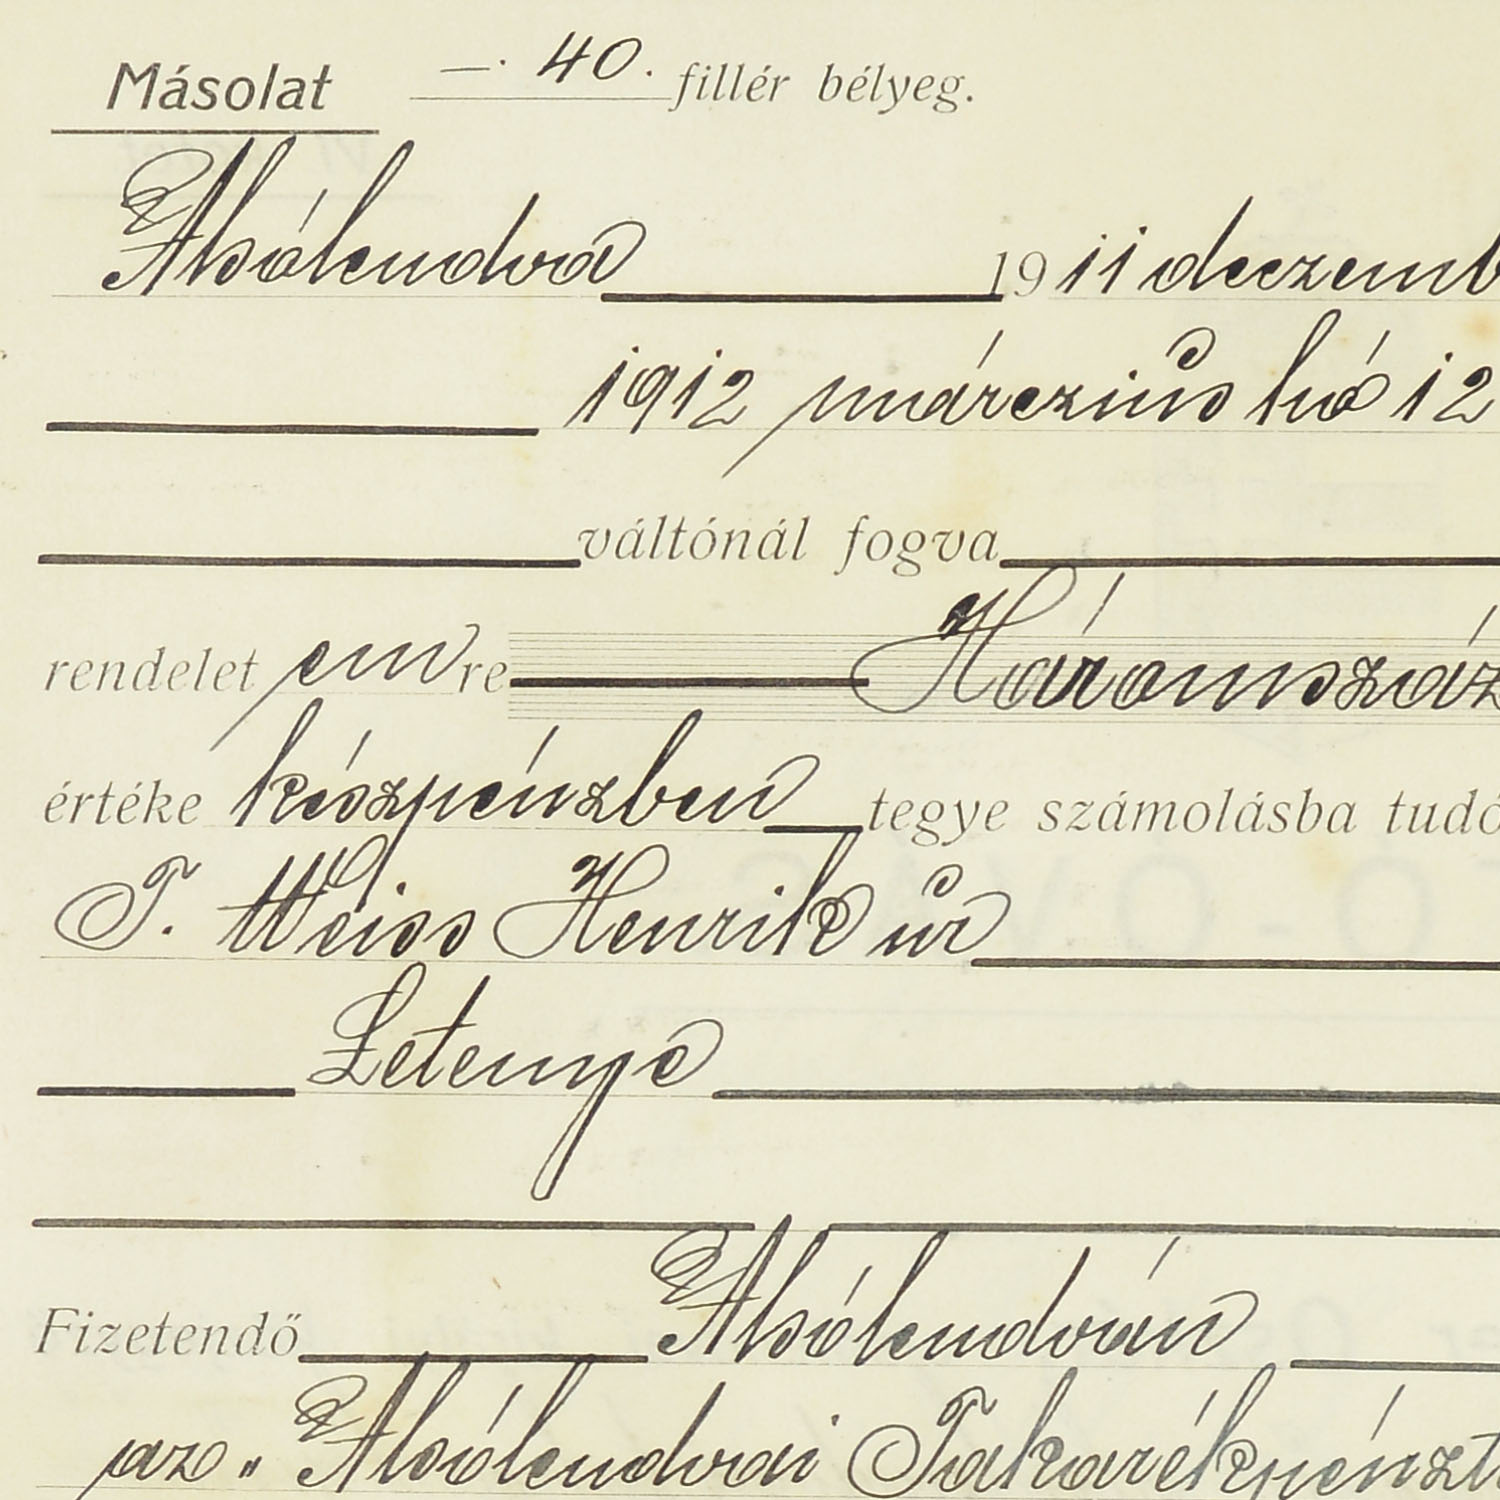 Másolat —. 40. fillér bélyeg.
Alsólendva 1911 deczemb
1912 márczius hó 12
váltónál fogva
rendelet em re Háromszáz
értéke készpénzben tegye számolásba tudó
T. Weiss Henrik úr
Letenye
Fizetendő Alsólendván
az „Alsólendvai Takarékpénzt